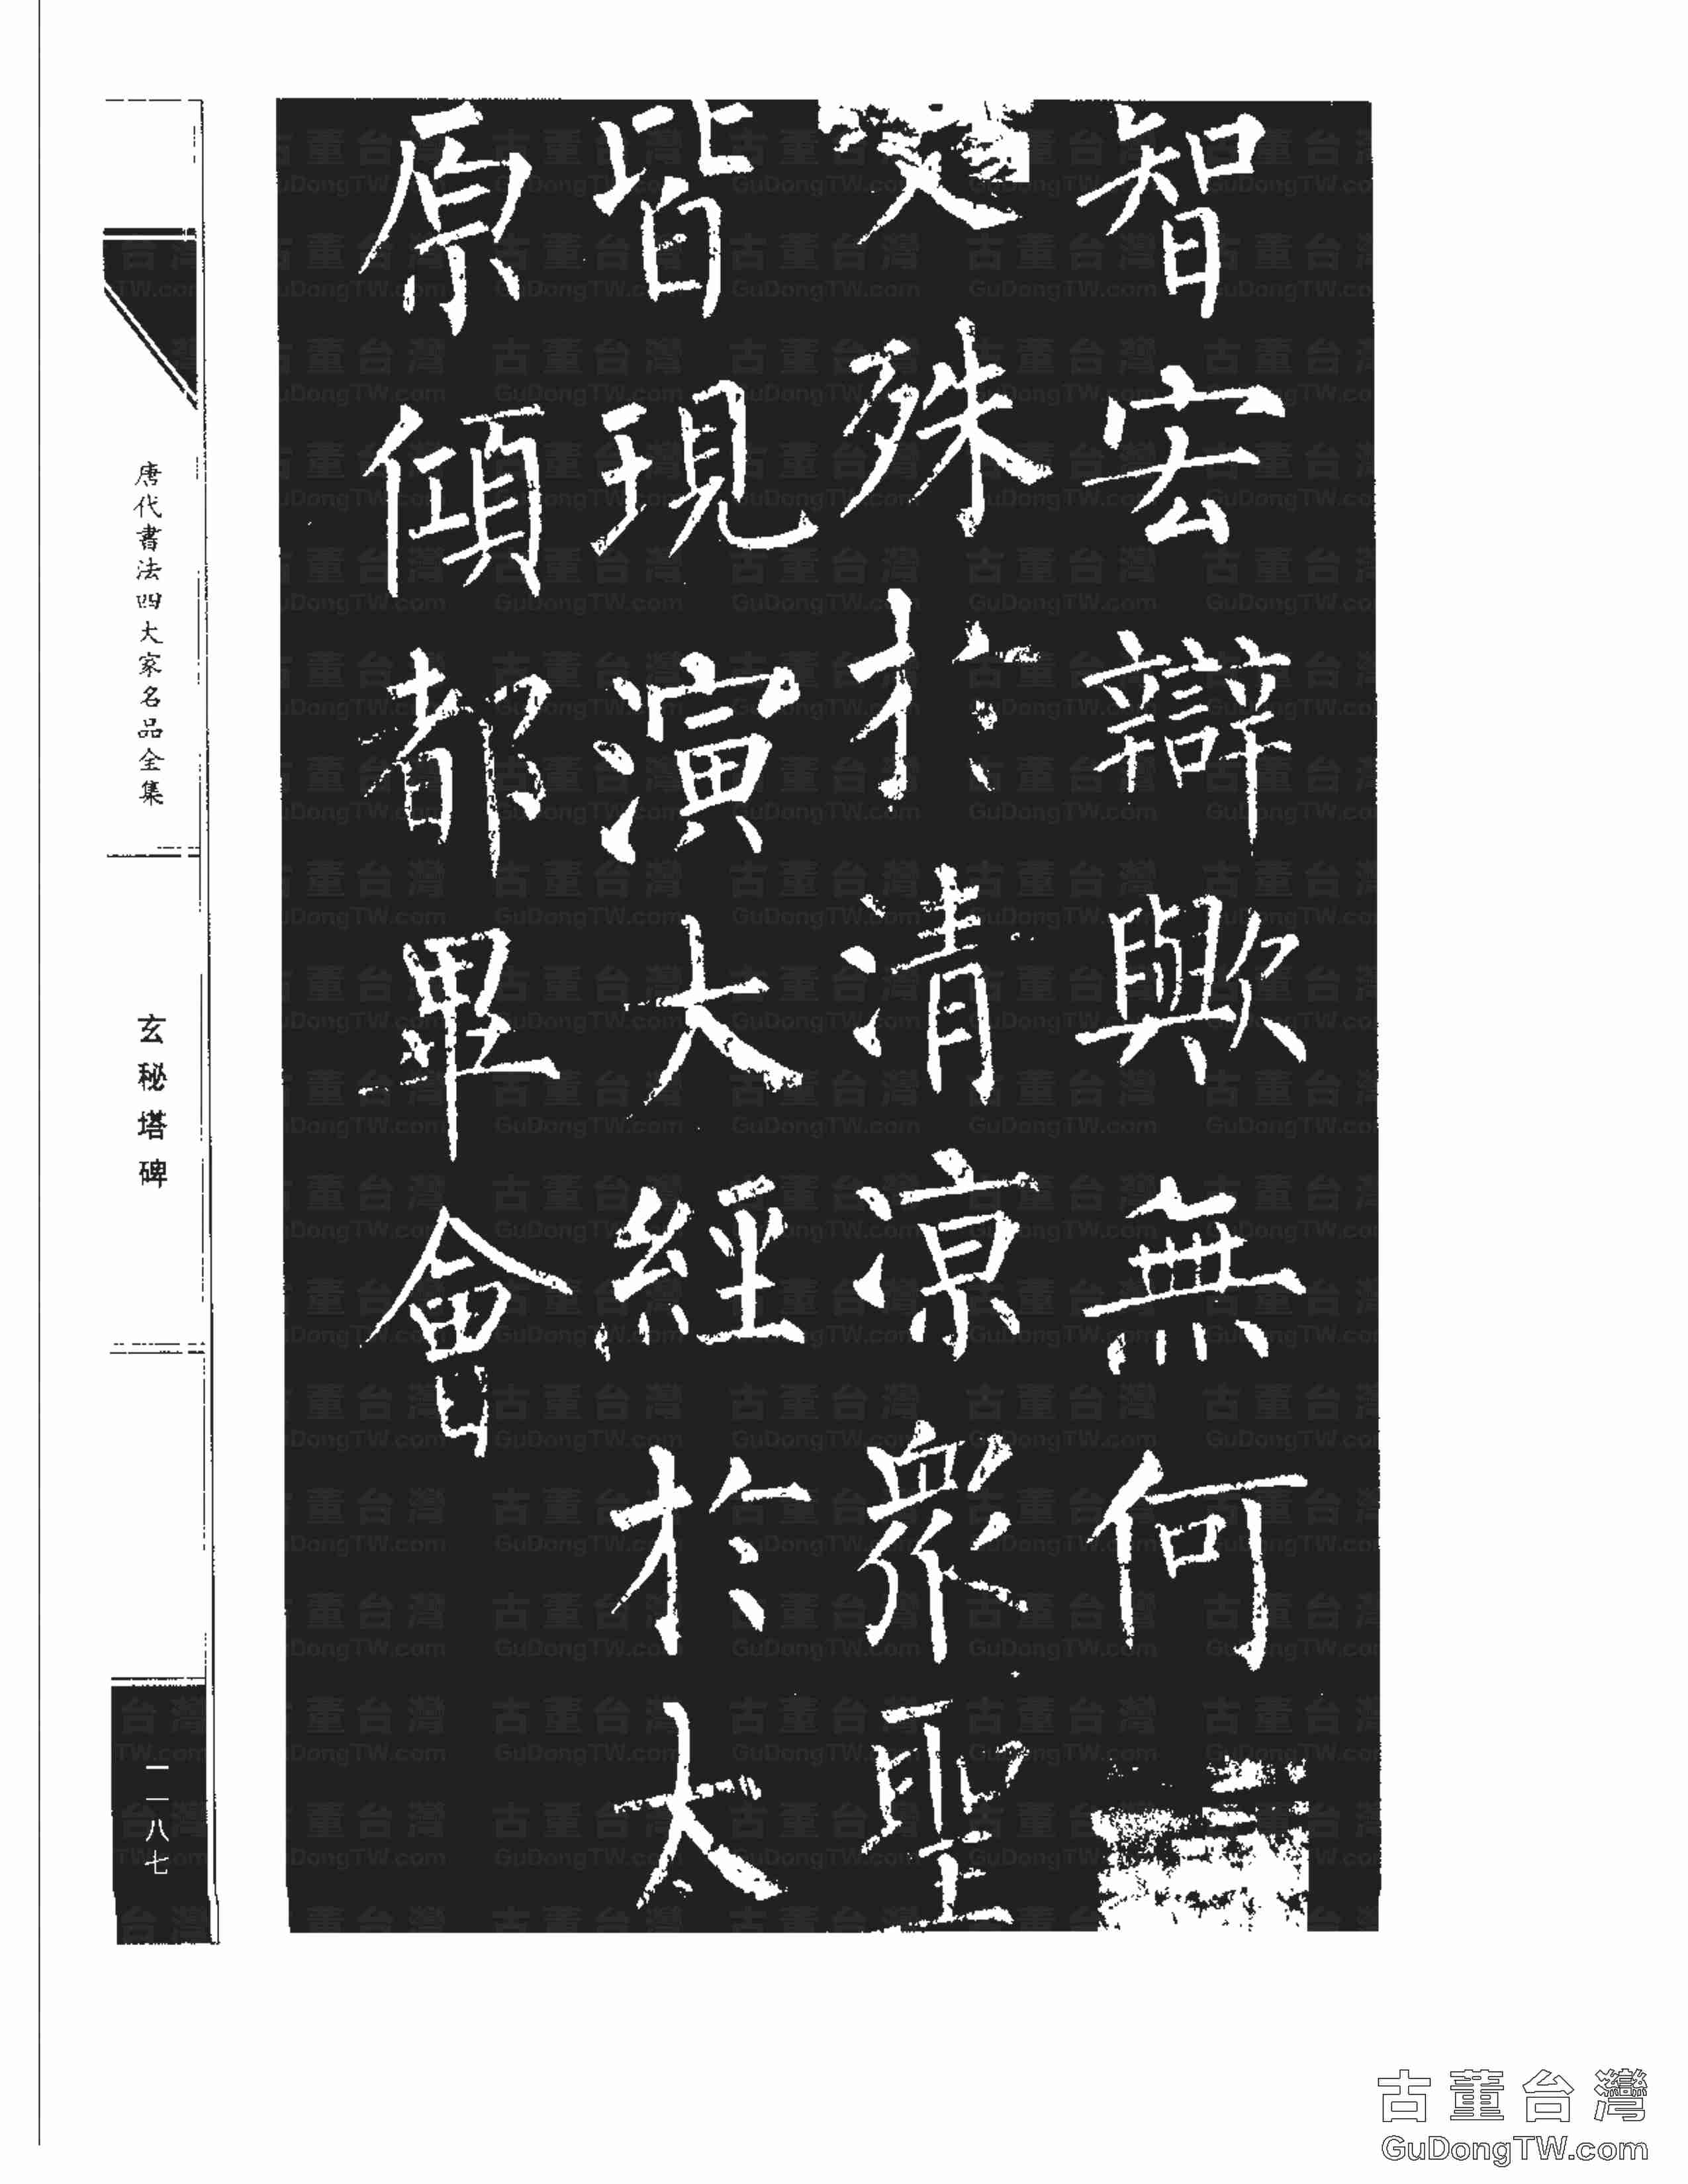 智宏辯歟無何
殊於清涼眾聖
皆現演大經於太
原傾都畢會
唐代書法四大家名品全集
玄秘塔碑
二一八七
古董台灣
GuDongTW.com